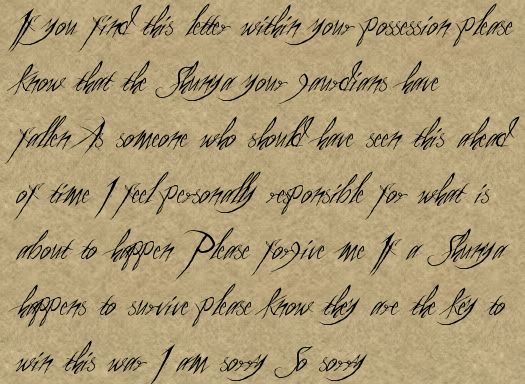 If you find this letter within your possession please
know that the Shunya your gaurdians have
fallen As someone who should have seen this ahead
of time I feel personally responsible for what is
about to happen Please forgive me If a Shunya
happens to survive please know they are the key to
win this war I am sorry So sorry